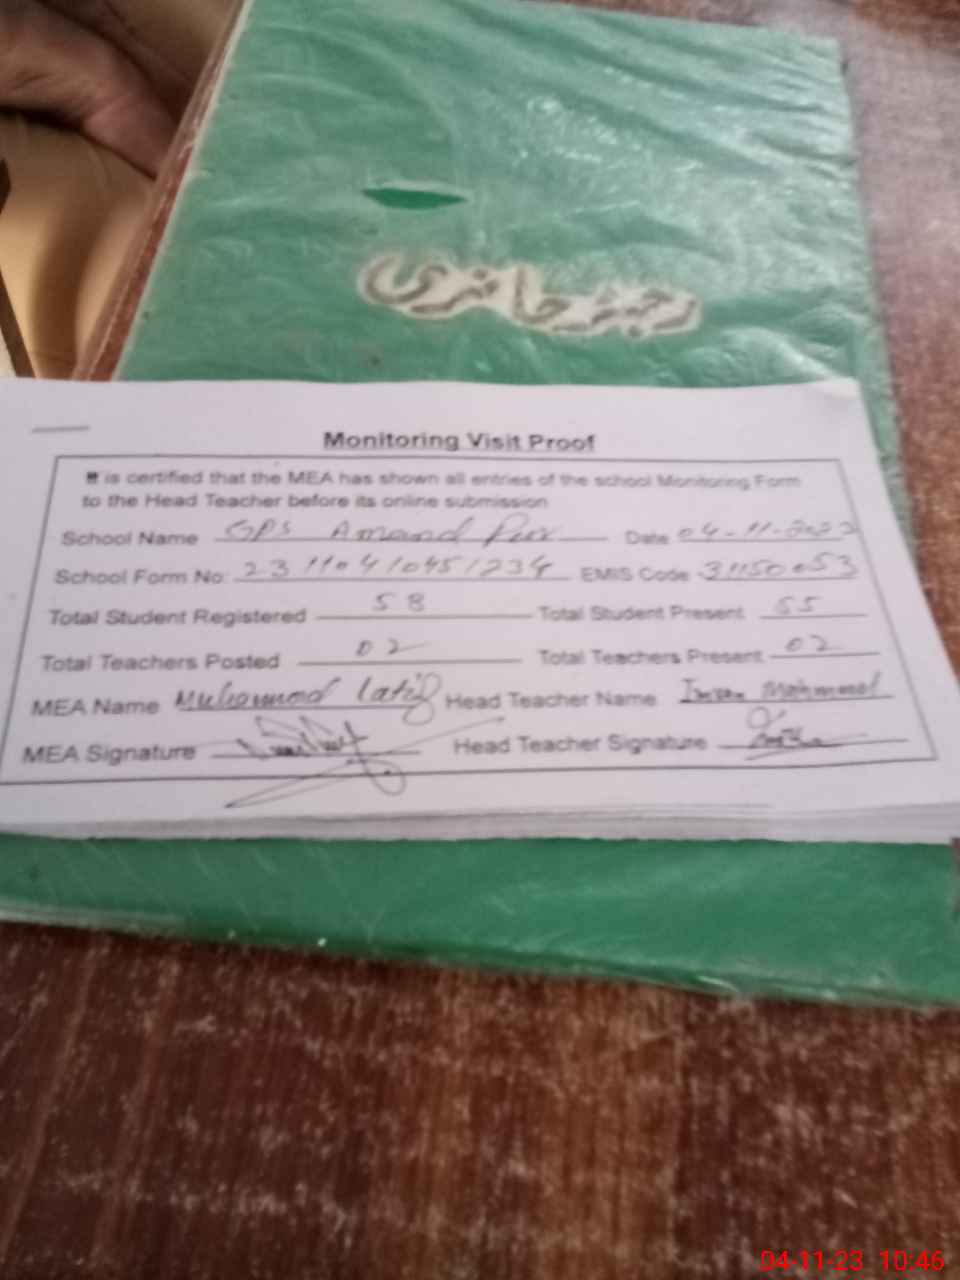 رجسٹر حاضری
Monitoring Visit Proof
It is certified that the MEA has shown all entries of the school Monitoring Form
to the Head Teacher before its online submission
School Name GPS Amand Pur Date 04-11-2023
School Form No: 23110410451234 EMIS Code 31150053
Total Student Registered 58 Total Student Present 55
Total Teachers Posted 02 Total Teachers Present 02
MEA Name Muhammad Latif Head Teacher Name Imran Mahmood
MEA Signature Head Teacher Signature
04-11-23 10:46